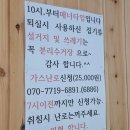 10시.부터매너타임입니다
퇴실시 사용하신 집기를
설거지 및 쓰레기는
꼭 분리수거장으로
감사 합니다~
가스난로신청(25,000원)
070-7719-6891(6886)
7시이전까지만 신청가능
설침시 난로는까주세요.